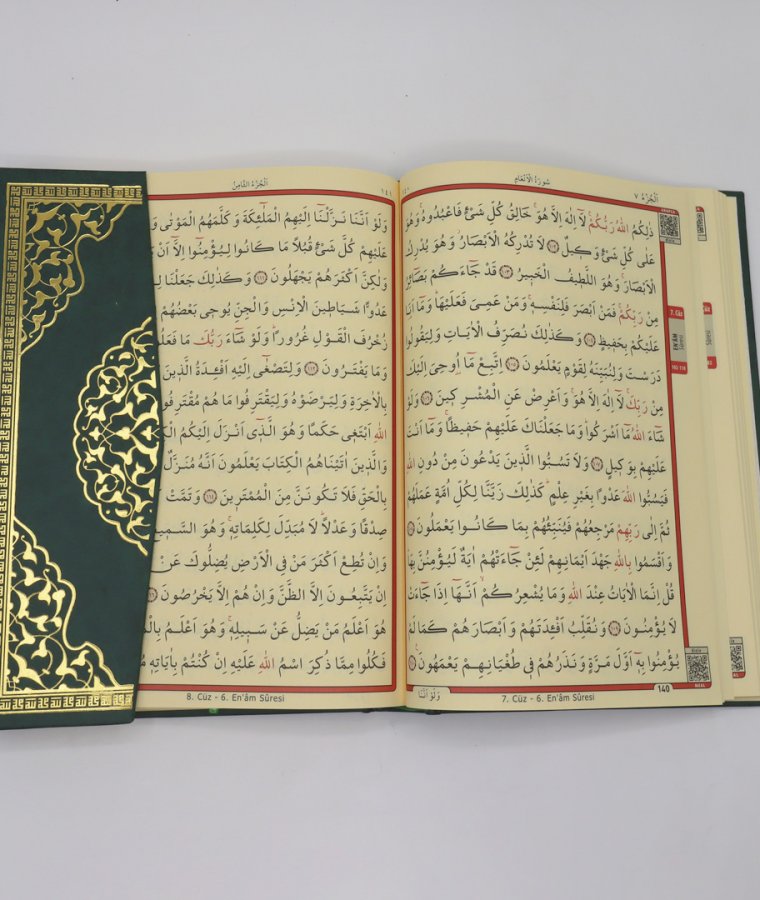 اَلْجُزْءُ ٧
سُورَةُ الْاَنْعَامِ
ذٰلِكُمُ اللّٰهُ رَبُّكُمْۚ لَٓا اِلٰهَ اِلَّا هُوَۚ خَالِقُ كُلِّ شَيْءٍ فَاعْبُدُوهُۚ وَهُوَ
عَلٰى كُلِّ شَيْءٍ وَك۪يلٌ ﴿١٠٢﴾ لَا تُدْرِكُهُ الْاَبْصَارُۘ وَهُوَ يُدْرِكُ
الْاَبْصَارَۚ وَهُوَ اللَّط۪يفُ الْخَب۪يرُ ﴿١٠٣﴾ قَدْ جَٓاءَكُمْ بَصَٓائِرُ
مِنْ رَبِّكُمْۚ فَمَنْ اَبْصَرَ فَلِنَفْسِه۪ۚ وَمَنْ عَمِيَ فَعَلَيْهَاۜ وَمَٓا اَنَا۬
عَلَيْكُمْ بِحَف۪يظٍ ﴿١٠٤﴾ وَكَذٰلِكَ نُصَرِّفُ الْاٰيَاتِ وَلِيَقُولُوا
دَرَسْتَ وَلِنُبَيِّنَهُ لِقَوْمٍ يَعْلَمُونَ ﴿١٠٥﴾ اِتَّبِعْ مَٓا اُو۫حِيَ اِلَيْكَ
مِنْ رَبِّكَۚ لَٓا اِلٰهَ اِلَّا هُوَۚ وَاَعْرِضْ عَنِ الْمُشْرِك۪ينَ ﴿١٠٦﴾ وَلَوْ
شَٓاءَ اللّٰهُ مَٓا اَشْرَكُواۜ وَمَا جَعَلْنَاكَ عَلَيْهِمْ حَف۪يظًاۚ وَمَٓا اَنْتَ
عَلَيْهِمْ بِوَك۪يلٍ ﴿١٠٧﴾ وَلَا تَسُبُّوا الَّذ۪ينَ يَدْعُونَ مِنْ دُونِ اللّٰهِ
فَيَسُبُّوا اللّٰهَ عَدْوًا بِغَيْرِ عِلْمٍۜ كَذٰلِكَ زَيَّنَّا لِكُلِّ اُمَّةٍ عَمَلَهُمْۖ
ثُمَّ اِلٰى رَبِّهِمْ مَرْجِعُهُمْ فَيُنَبِّئُهُمْ بِمَا كَانُوا يَعْمَلُونَ ﴿١٠٨﴾
وَاَقْسَمُوا بِاللّٰهِ جَهْدَ اَيْمَانِهِمْ لَئِنْ جَٓاءَتْهُمْ اٰيَةٌ لَيُؤْمِنُنَّ بِهَاۜ
قُلْ اِنَّمَا الْاٰيَاتُ عِنْدَ اللّٰهِ وَمَا يُشْعِرُكُمْۙ اَنَّهَٓا اِذَا جَٓاءَتْ
لَا يُؤْمِنُونَ ﴿١٠٩﴾ وَنُقَلِّبُ اَفْـِٔدَتَهُمْ وَاَبْصَارَهُمْ كَمَا لَمْ
يُؤْمِنُوا بِه۪ٓ اَوَّلَ مَرَّةٍ وَنَذَرُهُمْ ف۪ي طُغْيَانِهِمْ يَعْمَهُونَ ﴿١١٠﴾
7. Cüz
EN'ÂM
Sûresi
140
7. Cüz - 6. En'âm Sûresi
وَلَوْ اَنَّنَا
١٤١
اَلْجُزْءُ الثَّامِنُ
وَلَوْ اَنَّنَا نَزَّلْنَٓا اِلَيْهِمُ الْمَلٰٓئِكَةَ وَكَلَّمَهُمُ الْمَوْتٰى
عَلَيْهِمْ كُلَّ شَيْءٍ قُبُلًا مَا كَانُوا لِيُؤْمِنُٓوا اِلَّٓا اَنْ
وَلٰكِنَّ اَكْثَرَهُمْ يَجْهَلُونَ ﴿١١١﴾ وَكَذٰلِكَ جَعَلْنَا
عَدُوًّا شَيَاط۪ينَ الْاِنْسِ وَالْجِنِّ يُوح۪ي بَعْضُهُمْ
زُخْرُفَ الْقَوْلِ غُرُورًاۜ وَلَوْ شَٓاءَ رَبُّكَ مَا
وَمَا يَفْتَرُونَ ﴿١١٢﴾ وَلِتَصْغٰٓى اِلَيْهِ اَفْـِٔدَةُ الَّذ۪ينَ
بِالْاٰخِرَةِ وَلِيَرْضَوْهُ وَلِيَقْتَرِفُوا مَا هُمْ
اللّٰهِ اَبْتَغ۪ي حَكَمًا وَهُوَ الَّذ۪ٓي اَنْزَلَ اِلَيْكُمُ
وَالَّذ۪ينَ اٰتَيْنَاهُمُ الْكِتَابَ يَعْلَمُونَ اَنَّهُ مُنَزَّلٌ
بِالْحَقِّ فَلَا تَكُونَنَّ مِنَ الْمُمْتَر۪ينَ ﴿١١٤﴾ وَتَمَّتْ
صِدْقًا وَعَدْلًاۜ لَا مُبَدِّلَ لِكَلِمَاتِه۪ۚ وَهُوَ
وَاِنْ تُطِعْ اَكْثَرَ مَنْ فِي الْاَرْضِ يُضِلُّوكَ عَنْ
اِنْ يَتَّبِعُونَ اِلَّا الظَّنَّ وَاِنْ هُمْ اِلَّا يَخْرُصُونَ
هُوَ اَعْلَمُ مَنْ يَضِلُّ عَنْ سَب۪يلِه۪ۚ وَهُوَ اَعْلَمُ
فَكُلُوا مِمَّا ذُكِرَ اسْمُ اللّٰهِ عَلَيْهِ اِنْ كُنْتُمْ بِاٰيَاتِه۪
8. Cüz - 6. En'âm Sûresi